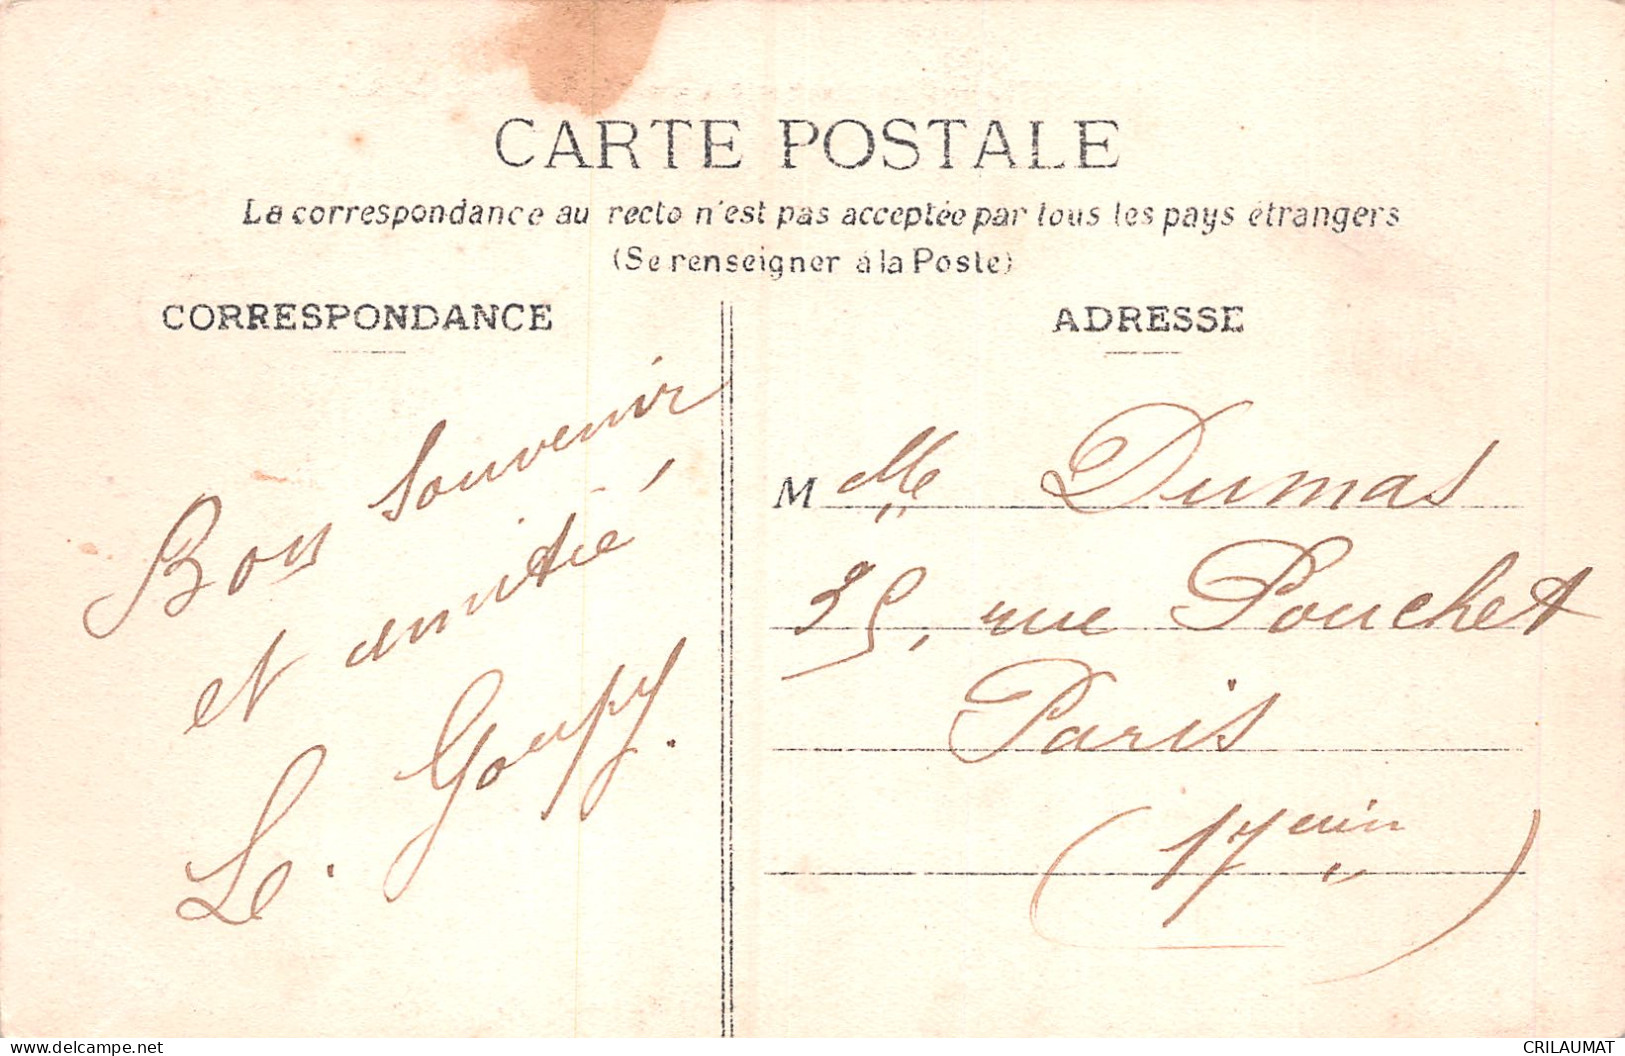 CARTE POSTALE
La correspondance au recto n'est pas acceptée par tous les pays étrangers
(Se renseigner à la Poste)
CORRESPONDANCE
Bon souvenir
et amitié
Le. Goupy.
ADRESSE
Melle Dumas
35, rue Pouchet
Paris
(17eme)
CRILAUMAT